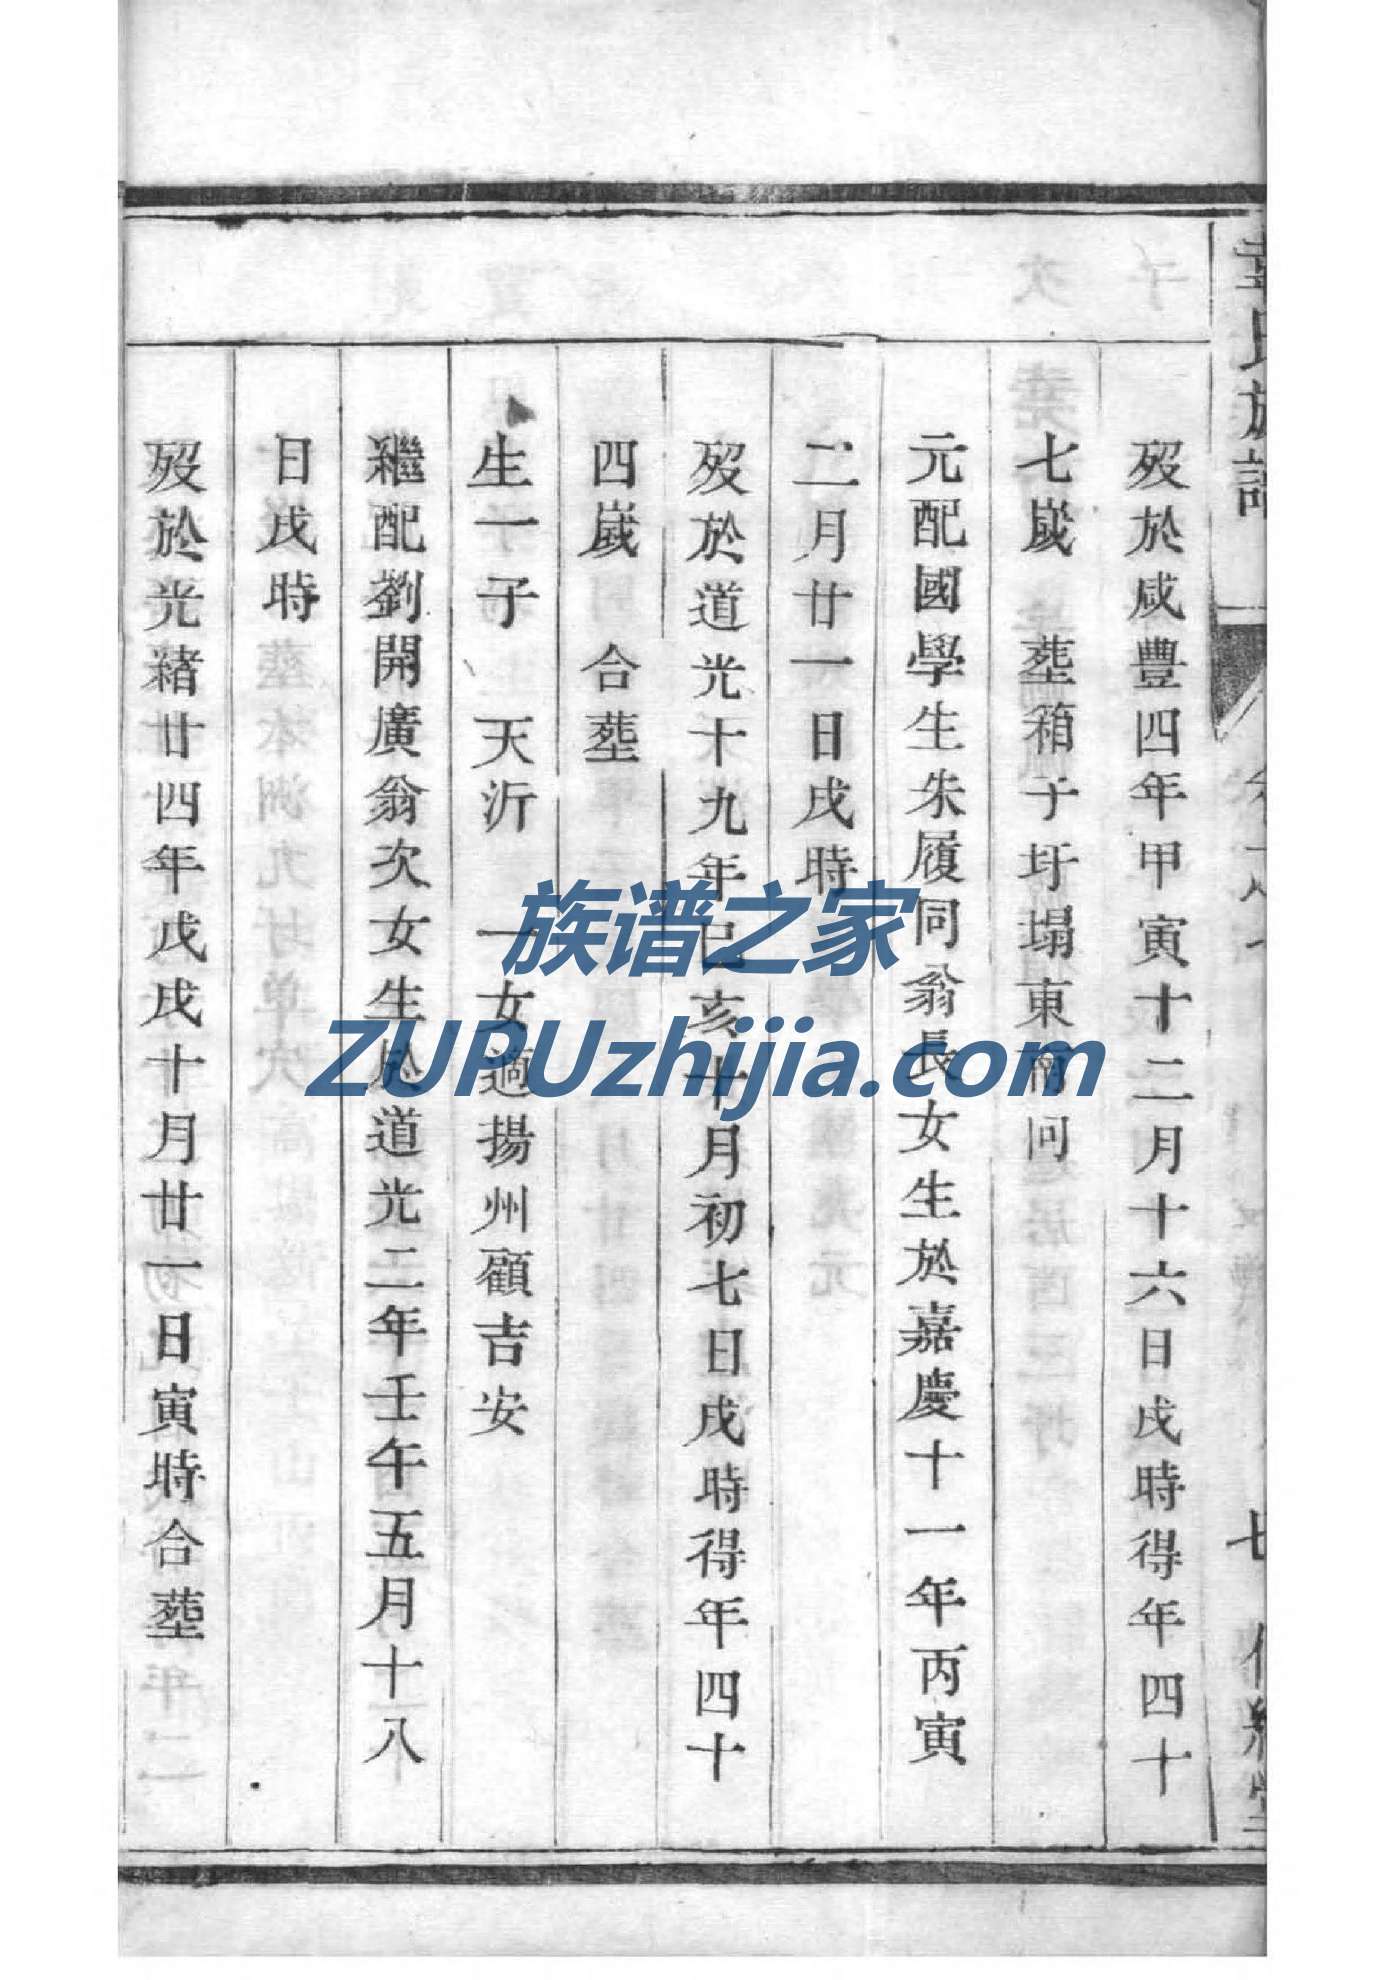 氏族譜
歿於咸豐四年甲寅十二月十六日戌時得年四十
七歲 塟箱子圩塌東南向
元配國學生朱履同翁長女生於嘉慶十一年丙寅
二月廿一日戌時
歿於道光十九年巳亥十月初七日戌時得年四十
四歲 合塟
生一子 天沂 一女適揚州顧吉安
繼配劉開廣翁次女生於道光二年壬午五月十八
日戌時
歿於光緒廿四年戊戌十月廿一日寅時合塟
族谱之家
ZUPUzhijia.com